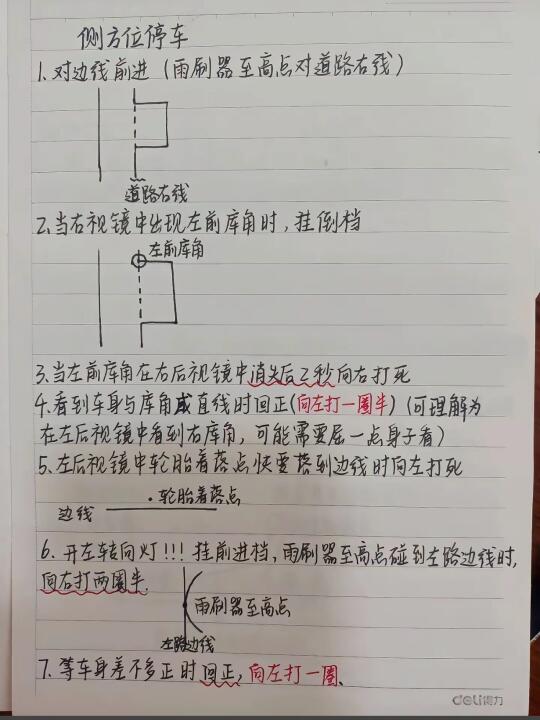 侧方位停车
1.对边线前进(雨刷器至高点对道路右线)
道路右线
2.当右视镜中出现左前库角时,挂倒档
左前库角
3.当左前库角在右后视镜中消失后2秒向右打死
4.看到车身与库角成直线时回正(向左打一圈半)(可理解为
在左后视镜中看到右库角,可能需要屈一点身子看)
5.左后视镜中轮胎着落点快要落到边线时向左打死
·轮胎着落点
边线
6.开左转向灯!!!挂前进档,雨刷器至高点碰到左路边线时,
向右打两圈半.
雨刷器至高点
左路边线
7.等车身差不多正时回正,向左打一圈、
deli得力